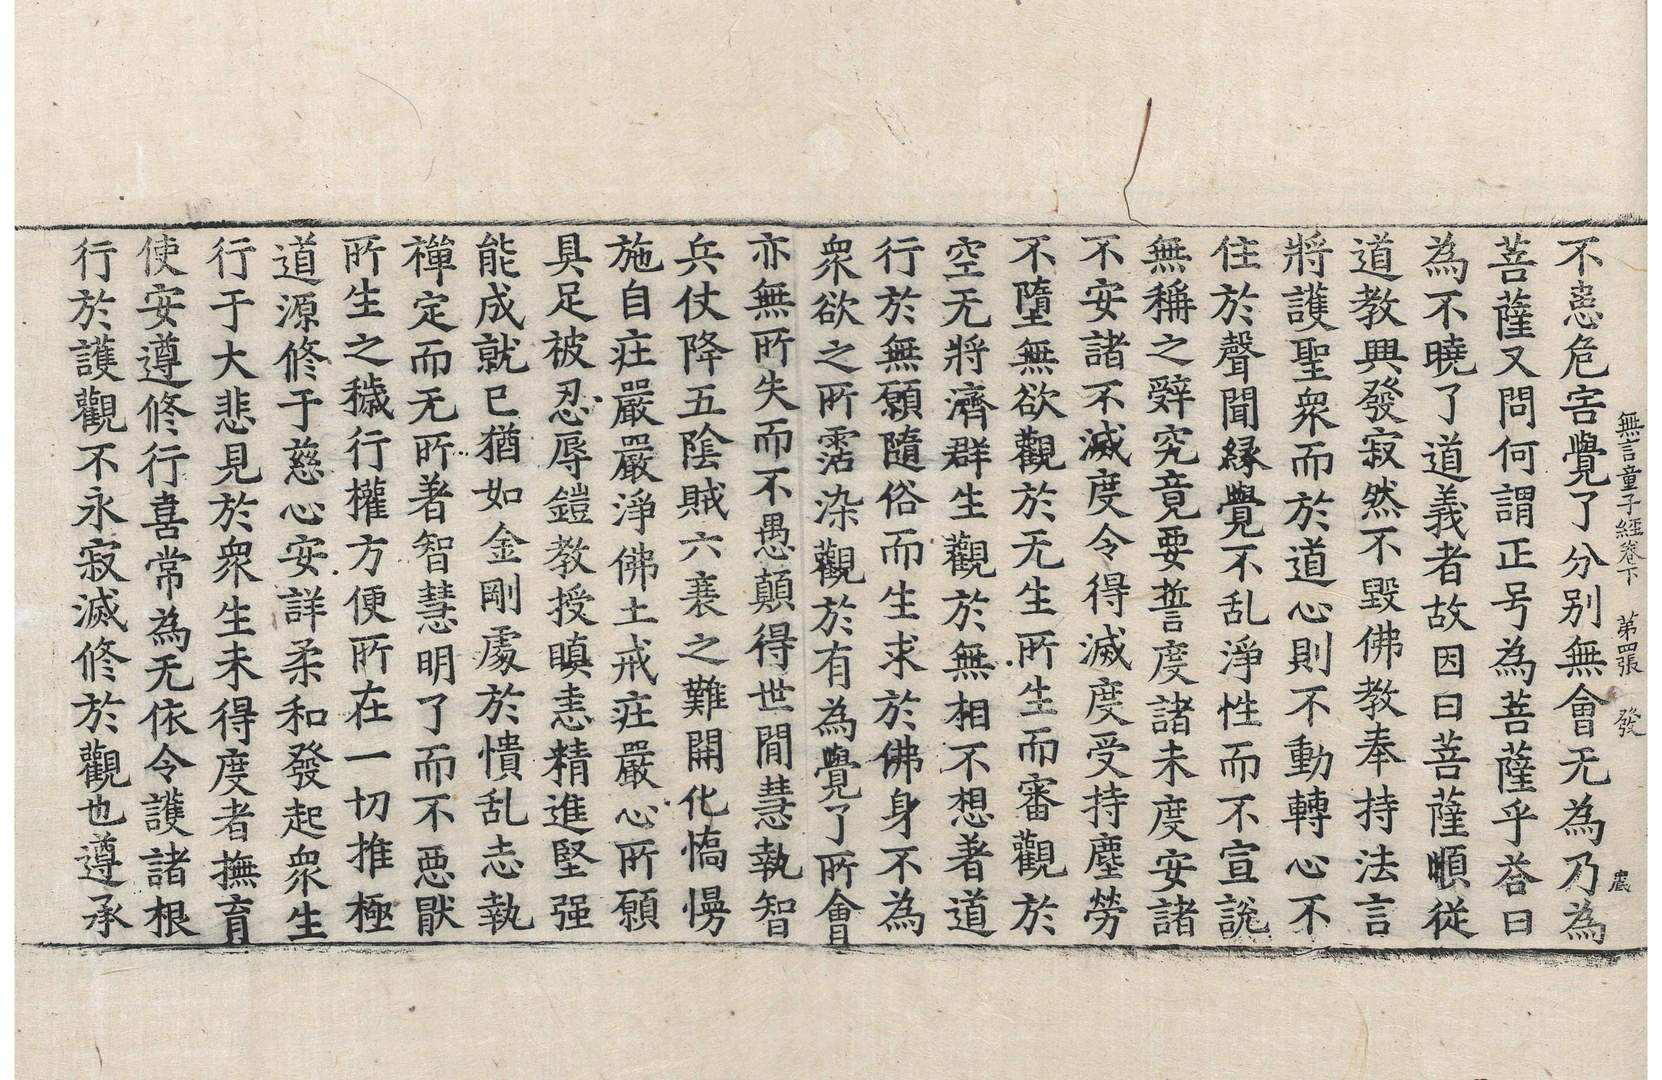 無言童子經卷下　第四張　發
不患危害覺了分别無會无為乃為
菩薩又問何謂正号為菩薩乎荅曰
為不曉了道義者故因曰菩薩順從
道教興發寂然不毀佛教奉持法言
將護聖衆而於道心則不動轉心不
住於聲聞縁覺不乱淨性而不宣說
無稱之辭究竟要誓度諸未度安諸
不安諸不滅度令得滅度受持塵勞
不墮無欲觀於无生所生而審觀於
空无將濟群生觀於無相不想著道
行於無願隨俗而生求於佛身不為
衆欲之所霑染觀於有為覺了所會
亦無所失而不愚顛得世間慧執智
兵仗降五陰賊六衰之難開化憍慢
施自㽵嚴嚴淨佛土戒㽵嚴心所願
具足被忍辱鎧教授瞋恚精進堅强
能成就已猶如金剛處於憒乱志執
禪定而无所著智慧明了而不惡猒
所生之穢行權方便所在一切推極
道源修于慈心安詳柔和發起衆生
行于大悲見於衆生未得度者撫育
使安遵修行喜常為无依令護諸根
行於護觀不永寂滅修於觀也遵承